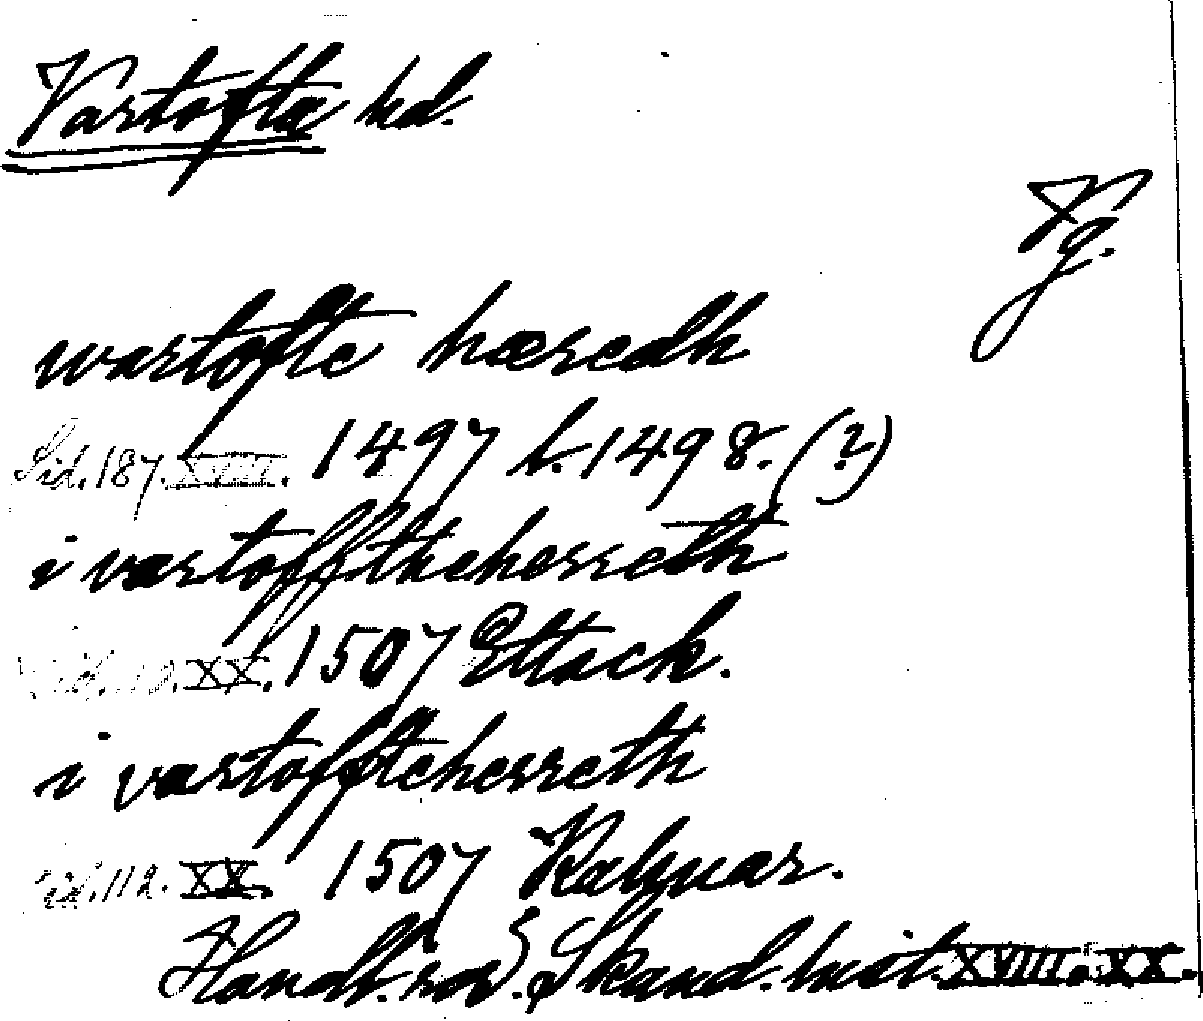 Vartofta hd.
Vg.
wartofte hæredh
Sid. 187. XVIII. 1497 l. 1498. (?)
i vartofftheherreth
Sid. 110. XX. 1507 Ettack.
i vartoffteherreth
Sid. 112. XX. 1507 Kalmar.
Handl. rör. Skand. hist. XVIII. XX.